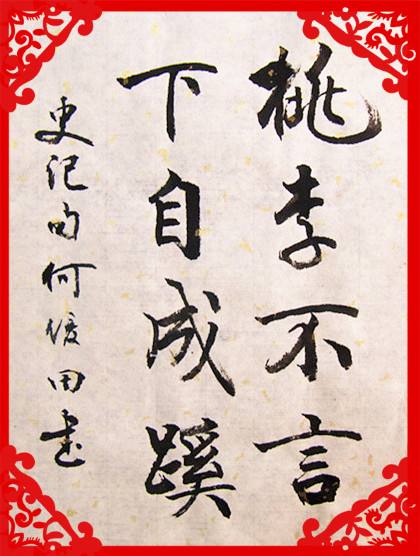 桃李不言
下自成蹊
史记句何俊田书